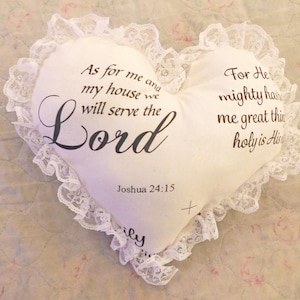 As for me and
my house we
will serve the
Lord
Joshua 24:15
For He
mighty has
me great thin
holy is His
ily